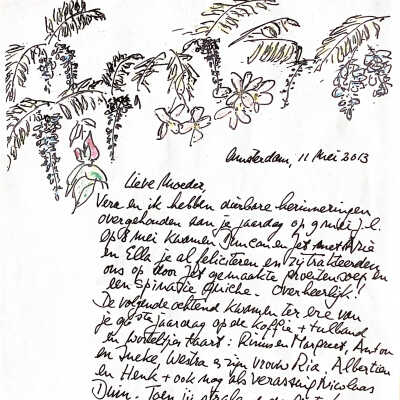 Amsterdam, 11 Mei 2013
Lieve Moeder,
Vera en ik hebben dierbare herinneringen
overgehouden aan je jaardag op 9 mei j.l.
Op 8 mei kwamen Duncan en Jet met
en Ella je al feliciteren en zij trakteerden
ons op door Jet gemaakte soep en
een spinatie quiche. Overheerlijk!
De volgende ochtend kwamen ter ere van
je ste jaardag op de koffie +
en worteltjestaart: en Margreet, Anton
en Ineke, Westra en zijn vrouw Ria, Albertien
en Henk + ook nog als verrassing Nicolaas
Duin. Toen